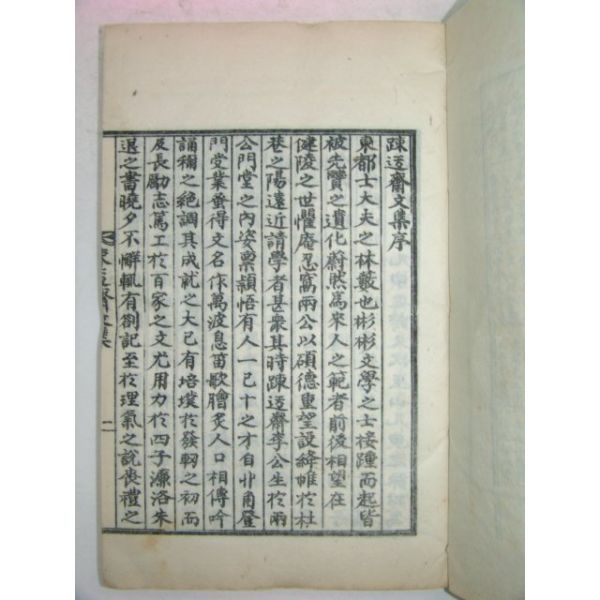 踈迃齋文集序
東都士大夫之林藪也彬彬文學之士接踵而起皆
被先贒之遺化蔚然爲來人之範者前後相望在
健陵之世懼庵忍窩兩公以碩德重望設絳帷於杜
巷之陽遠近請學者甚衆其時踈迃齋李公生於兩
公門堂之內姿禀穎悟有人一己十之才自丱角登
門堂業蚤得文名作萬波息笛歌膾炙人口相傳吟
誦稱之絶調其成就之大已有培埈於發軔之初而
及長勵志篤工於百家之文尤用力於四子濂洛朱
退之書曉夕不懈輒有劄記至於理氣之說喪禮之
齋文集
一